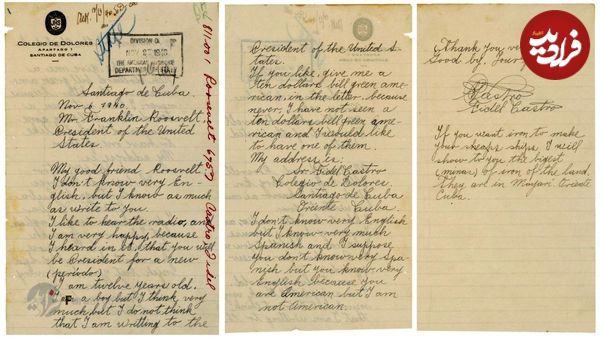 COLEGIO DE DOLORES
APARTADO 1
SANTIAGO DE CUBA
DIVISION O
NOV 27 1940
DEPARTMENT
811.001 Roosevelt
Santiago de Cuba.
Nov 6 1940.
Mr Franklin Roosvelt,
President of the United
States.
My good friend Roosvelt
I don't know very En-
glish, but I know as much
as write to you.
I like to hear the radio, and
I am very happy, because
I heard in it, that you will
be President for a new
(periodo)
I am twelve years old.
I am a boy but I think very
much but I do not think
that I am writting to the
President of the United St-
tates.
If you like, give me a
ten dollars bill green ame-
rican, in the letter, because
never, I have not seen a
ten dollars bill green ame-
rican and I would like
to have one of them.
My address is:
Sr. Fidel Castro
Colegio de Dolores
Santiago de Cuba
Oriente Cuba.
I don't know very English
but I know very much
Spanish and I suppose
you don't know very Spa-
nish but you know very
English because you
are American but I am
not American.
Thank you very
Good by. Your
Castro
Fidel Castro
If you want iron to make
your sheaps ships I will
show to you the bigest
(minas) of iron of the land.
They are in Mayari Oriente
Cuba.
فرادید